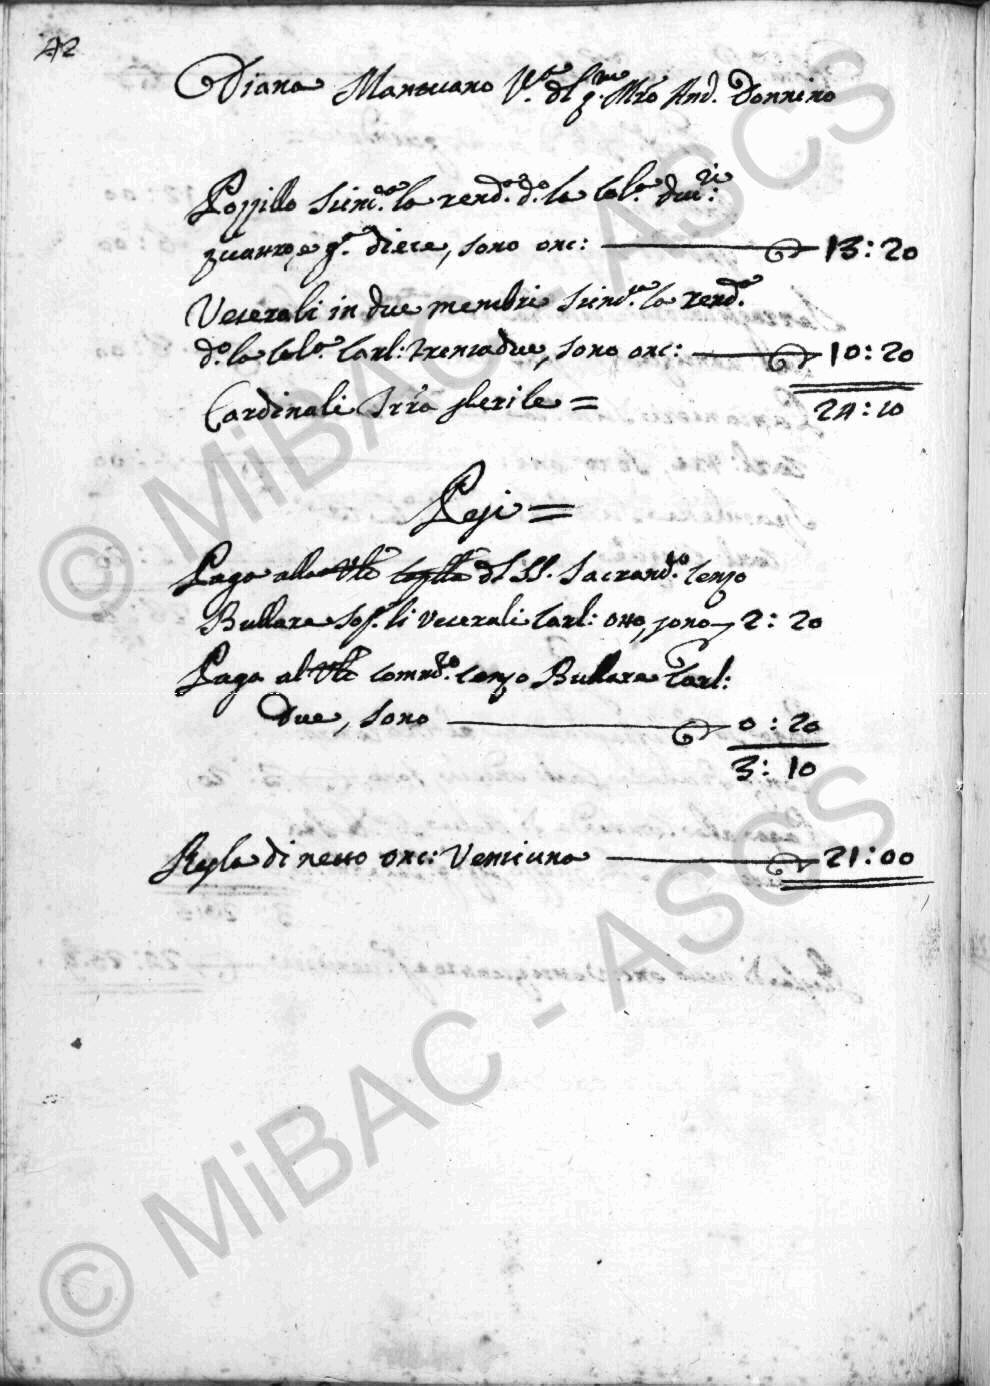 42
Diana Mantuano V.ª dl q.m Mro And. Donnino
Pozzillo stim.ª la rend.ª d.ª la Col.ª duc.ti
quattro, e g.ª diece, sono onc: 13:20
Vecerali in due membri stim.ª la rend.ª
d.ª la Col.ª Carl: trentadue, sono onc: 10:20
Cardinali Trrã sterile = 24:10
Pesi =
Paga alla dl SS. Sacramd.º Cenzo
Bullare Sop. li Vecerali Carl: otto, sono 2:20
Paga al Comnd.º Cenzo Bullare Carl:
due, sono 0:20
3:10
Resta di netto onc: Ventiuna 21:00
© MiBAC - ASCS
© MiBAC - ASCS